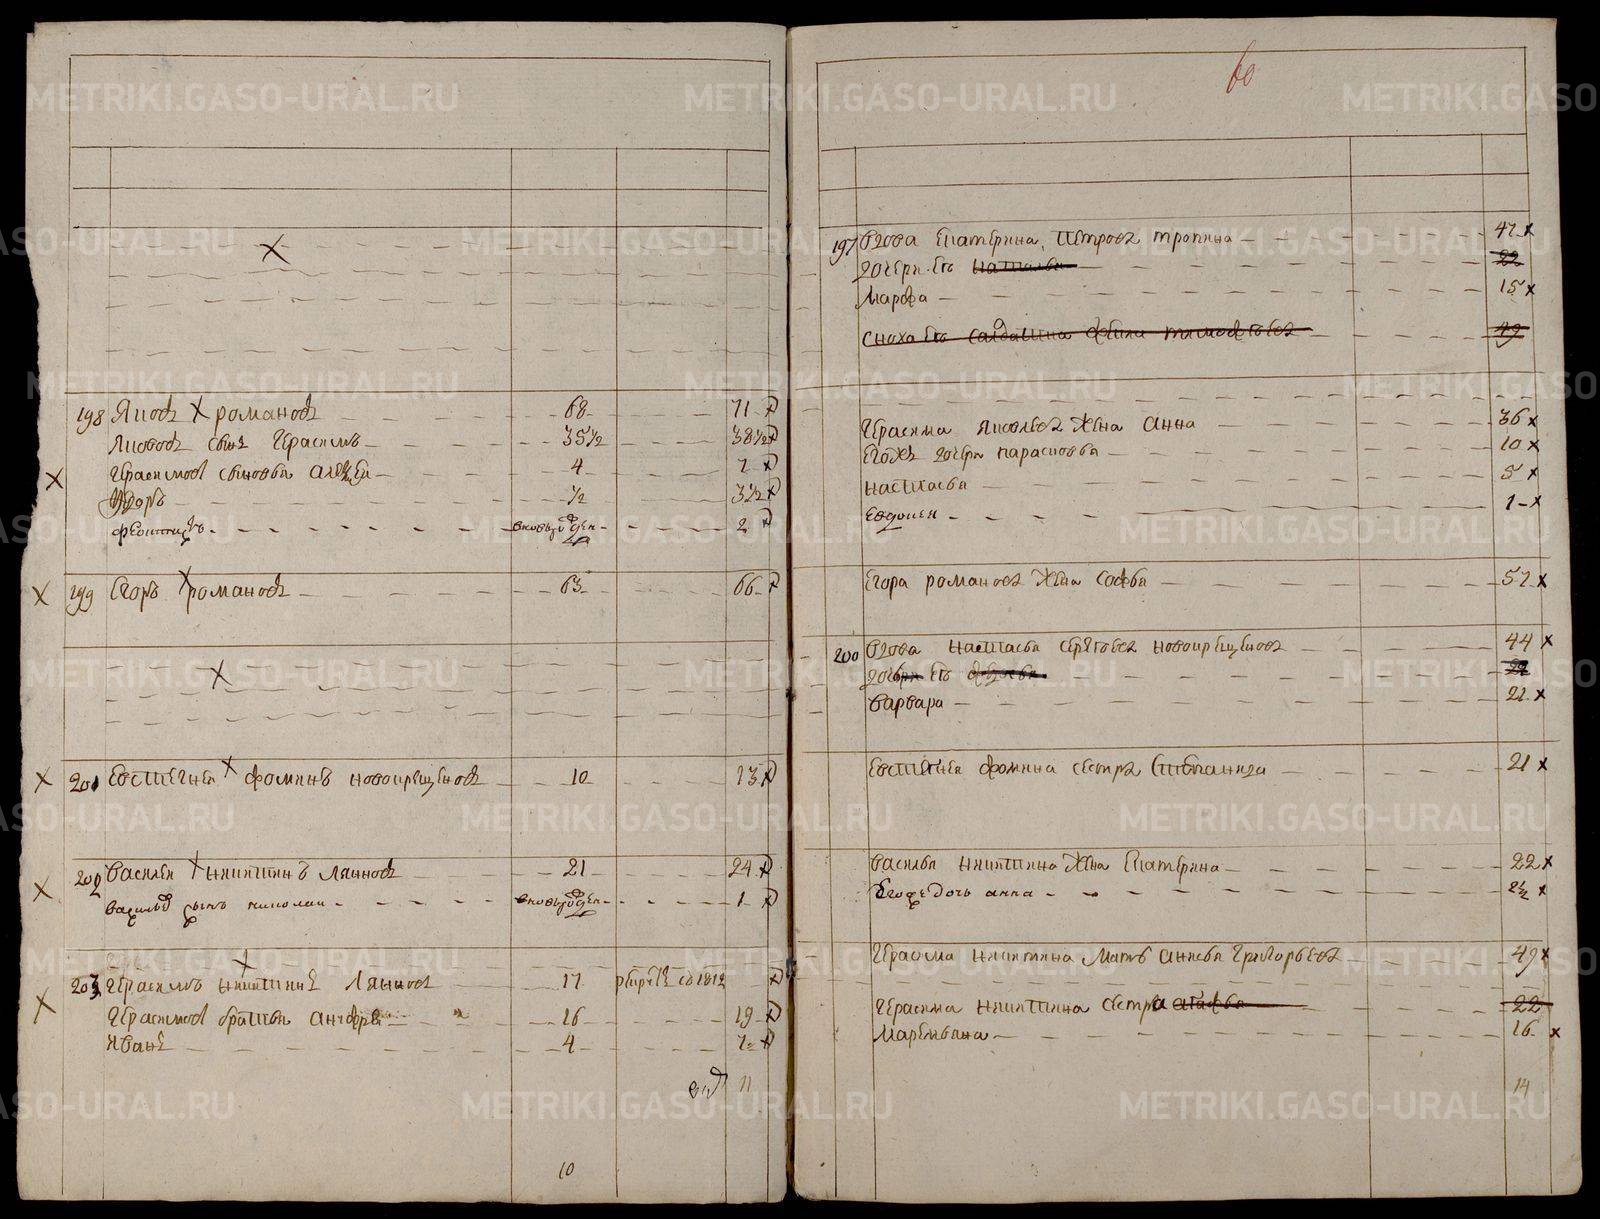 60
198 Яковъ романовъ 68 71
Яковов сынъ Герасимъ 35 1/2 38 1/2
Герасимов сыновья Алексей 4 7
Егоръ 1/2 3 1/2
вновьрожден 2
199 Егоръ романовъ 63 66
201 Евстигней фоминъ новокрещеновъ 10 13
202 Василей никитинъ 21 24
Васильев сынъ николай вновьрожден 1
203 Герасимъ никитинъ 17 рекрутъ съ 1812
Герасимов братья андрей 16 19
Иванъ 4 7
11
10
197 вдова Екатерина Петрова тропина 47
дочери ея наталья 22
Марфа 15
сноха ея 49
Герасима Яковлева жена анна 36
Егожъ дочери парасковья 10
настасья 5
Евдокея 1
Егора романова жена софья 57
200 вдова настасья сергеева новокрещенова 44
дочери ея 22
варвара 21
Евстигнея фомина сестра Степанида 21
василья никитина жена Екатерина 22
Егоже дочь анна 2 1/2
Герасима никитина мать анисья Григорьева 49
Герасима никитина сестра агафья 22
Маремьяна 16
14
METRIKI.GASO-URAL.RU